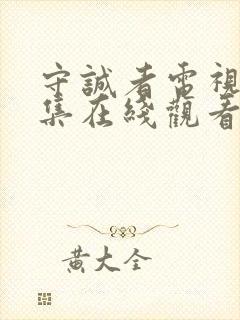 守誠者電視
集在綫觀看
黃大全